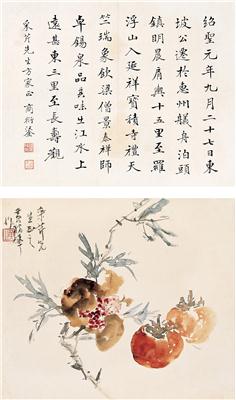 紹聖元年九月二十七日東
坡公遷於惠州艤舟泊頭
鎮明晨肩輿十五里至羅
浮山入延祥寶積寺禮天
竺瑞象飲梁僧景泰禪師
卓錫泉品其味出江水上
遠甚東三里至長壽觀
采芹先生方家正 商衍鎏